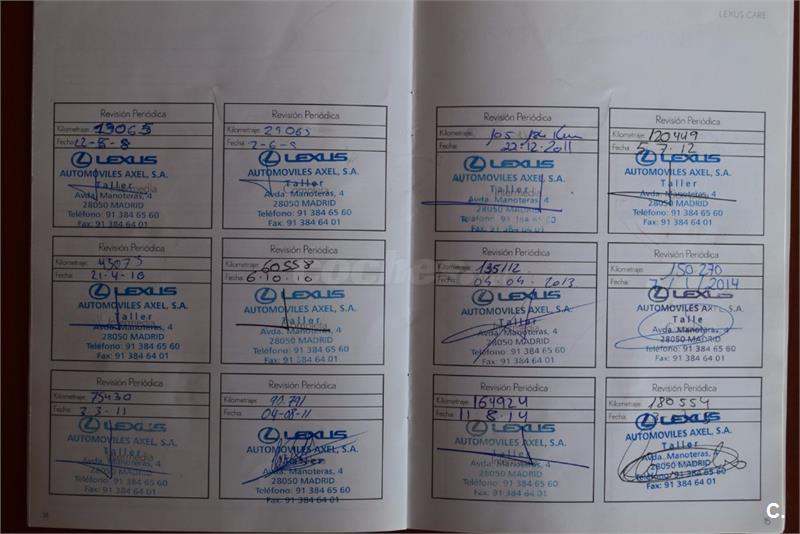 LEXUS CARE
Revisión Periódica
Kilometraje: 19065
Fecha: 22-5-8
LEXUS
AUTOMOVILES AXEL, S.A.
Taller
Intermedia
Avda. Manoteras, 4
28050 MADRID
Teléfono: 91 384 65 60
Fax: 91 384 64 01
Revisión Periódica
Kilometraje: 29065
Fecha:
LEXUS
AUTOMOVILES AXEL, S.A.
Taller
Avda. Manoteras, 4
28050 MADRID
Teléfono: 91 384 65 60
Fax: 91 384 64 01
Revisión Periódica
Kilometraje:
Fecha: 21-4-10
LEXUS
AUTOMOVILES AXEL, S.A.
Taller
Avda. Manoteras, 4
28050 MADRID
Teléfono: 91 384 65 60
Fax: 91 384 64 01
Revisión Periódica
Kilometraje: 60558
Fecha: 6-10-10
LEXUS
AUTOMOVILES AXEL, S.A.
Taller
Avda. Manoteras, 4
28050 MADRID
Teléfono: 91 384 65 60
Fax: 91 384 64 01
Revisión Periódica
Kilometraje: 75430
Fecha: 3-3-11
LEXUS
AUTOMOVILES AXEL, S.A.
Taller
Intermedia
Avda. Manoteras, 4
28050 MADRID
Teléfono: 91 384 65 60
Fax: 91 384 64 01
Revisión Periódica
Kilometraje: 90.791
Fecha: 04-08-11
LEXUS
AUTOMOVILES AXEL, S.A.
Taller
Avda. Manoteras, 4
28050 MADRID
Teléfono: 91 384 65 60
Fax: 91 384 64 01
14
Revisión Periódica
Kilometraje: 105 184 Km
22-12-2011
LEXUS
AUTOMOVILES AXEL, S.A.
Taller
Intermedia
Avda. Manoteras, 4
28050 MADRID
Teléfono: 91 384 65 60
Fax: 91 384 64 01
Revisión Periódica
Kilometraje: 120449
Fecha: 5.7.12
LEXUS
AUTOMOVILES AXEL, S.A.
Taller
Avda. Manoteras, 4
28050 MADRID
Teléfono: 91 384 65 60
Fax: 91 384 64 01
Revisión Periódica
Kilometraje: 135112
Fecha: 04-04-2013
LEXUS
AUTOMOVILES AXEL, S.A.
Taller
Avda. Manoteras, 4
28050 MADRID
Teléfono: 91 384 65 60
Fax: 91 384 64 01
Revisión Periódica
Kilometraje: 150.270
Fecha: 7/1/2014
LEXUS
AUTOMOVILES AXEL, S.A.
Talle
Avda. Manoteras, 4
28050 MADRID
Teléfono: 91 384 65 60
Fax: 91 384 64 01
Revisión Periódica
Kilometraje: 164924
Fecha: 11.8.14
LEXUS
AUTOMOVILES AXEL, S.A.
Taller
Avda. Manoteras, 4
28050 MADRID
Teléfono: 91 384 65 60
Fax: 91 384 64 01
Revisión Periódica
Kilometraje: 180554
Fecha:
LEXUS
AUTOMOVILES AXEL, S.A.
Taller
Avda. Manoteras, 4
28050 MADRID
Teléfono: 91 384 65 60
Fax: 91 384 64 01
15
C.